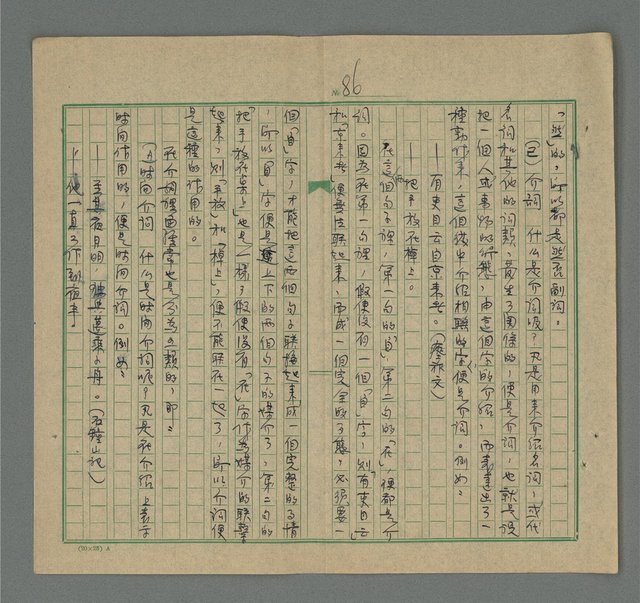 № 86
「然」的,所以都是然否副詞。
(己)介詞 什么是介詞呢?凡是用来介紹名詞,或代
名詞和其他的詞類,發生了関係的,便是介詞,也就是說
把一個人或事物的行態,由這個字的介紹,而表達出了一
種動作来,這個從中介紹相聯的字便是介詞。例如:
——有吏自云自京来者。(蔡邠文)
——把手放在棹上。
在這個句子裡,第一句的「自」,第二句的「在」,便都是介
詞。因為在第一句裡,假使沒有一個「自」字,則「有吏自云」
和「京来者」便要性联起来,而成一個完全的了態,必須要一
個「自」字,才能把這兩個句子联起来成一個完整的事情
,所以「自」字便是上下的兩個句子的媒介了,第二句的
「把手放在桌上」也是一樣,假使沒有「在」字作為媒介的联繫
起来,則「手放」和「棹上」便不能联在一起了,所以介詞便
是這種的作用的。
在介詞裡面通常也是分為三類的,即:
(A)時间介詞 什么是時间介詞呢?凡是在介紹上表示
時间作用的,便是時间介詞。例如:
——至其夜月明,独與邁乘小舟。(石鐘山記)
——他一直工作到夜半。
(20×25) A